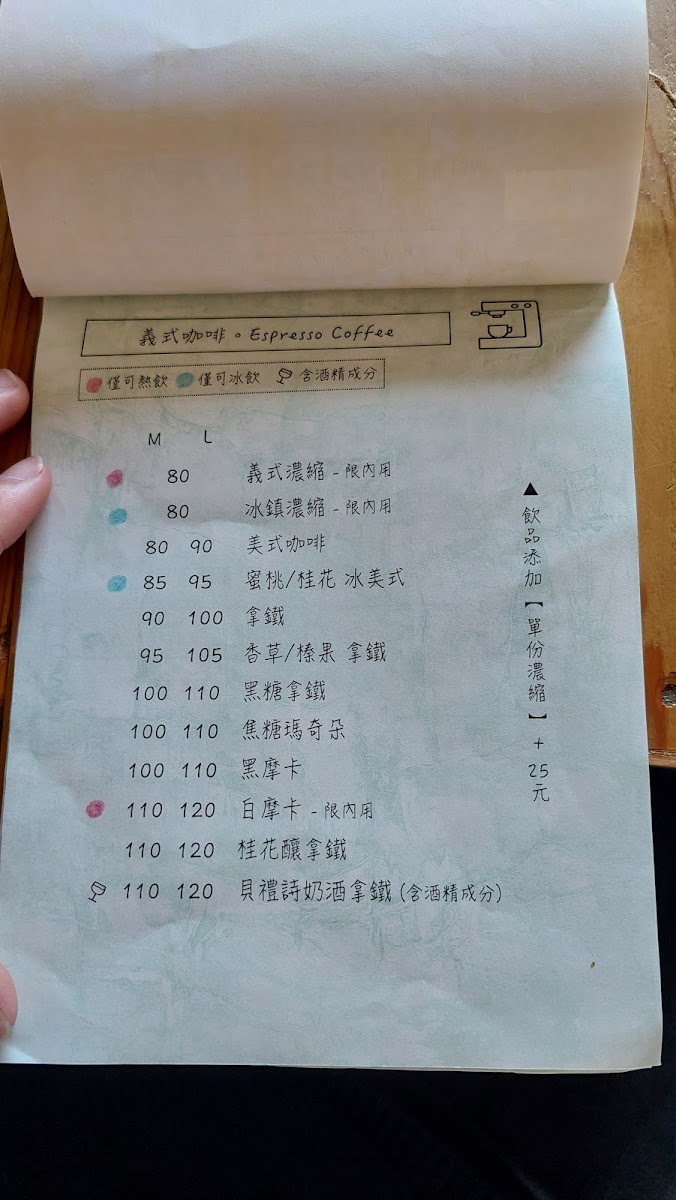 義式咖啡。Espresso Coffee
僅可熱飲 僅可冰飲 含酒精成分
M L
80 義式濃縮 - 限內用
80 冰鎮濃縮 - 限內用
80 90 美式咖啡
85 95 蜜桃/桂花 冰美式
90 100 拿鐵
95 105 香草/榛果 拿鐵
100 110 黑糖拿鐵
100 110 焦糖瑪奇朵
100 110 黑摩卡
110 120 白摩卡 - 限內用
110 120 桂花釀拿鐵
110 120 貝禮詩奶酒拿鐵 (含酒精成分)
▲飲品添加【單份濃縮】+25元